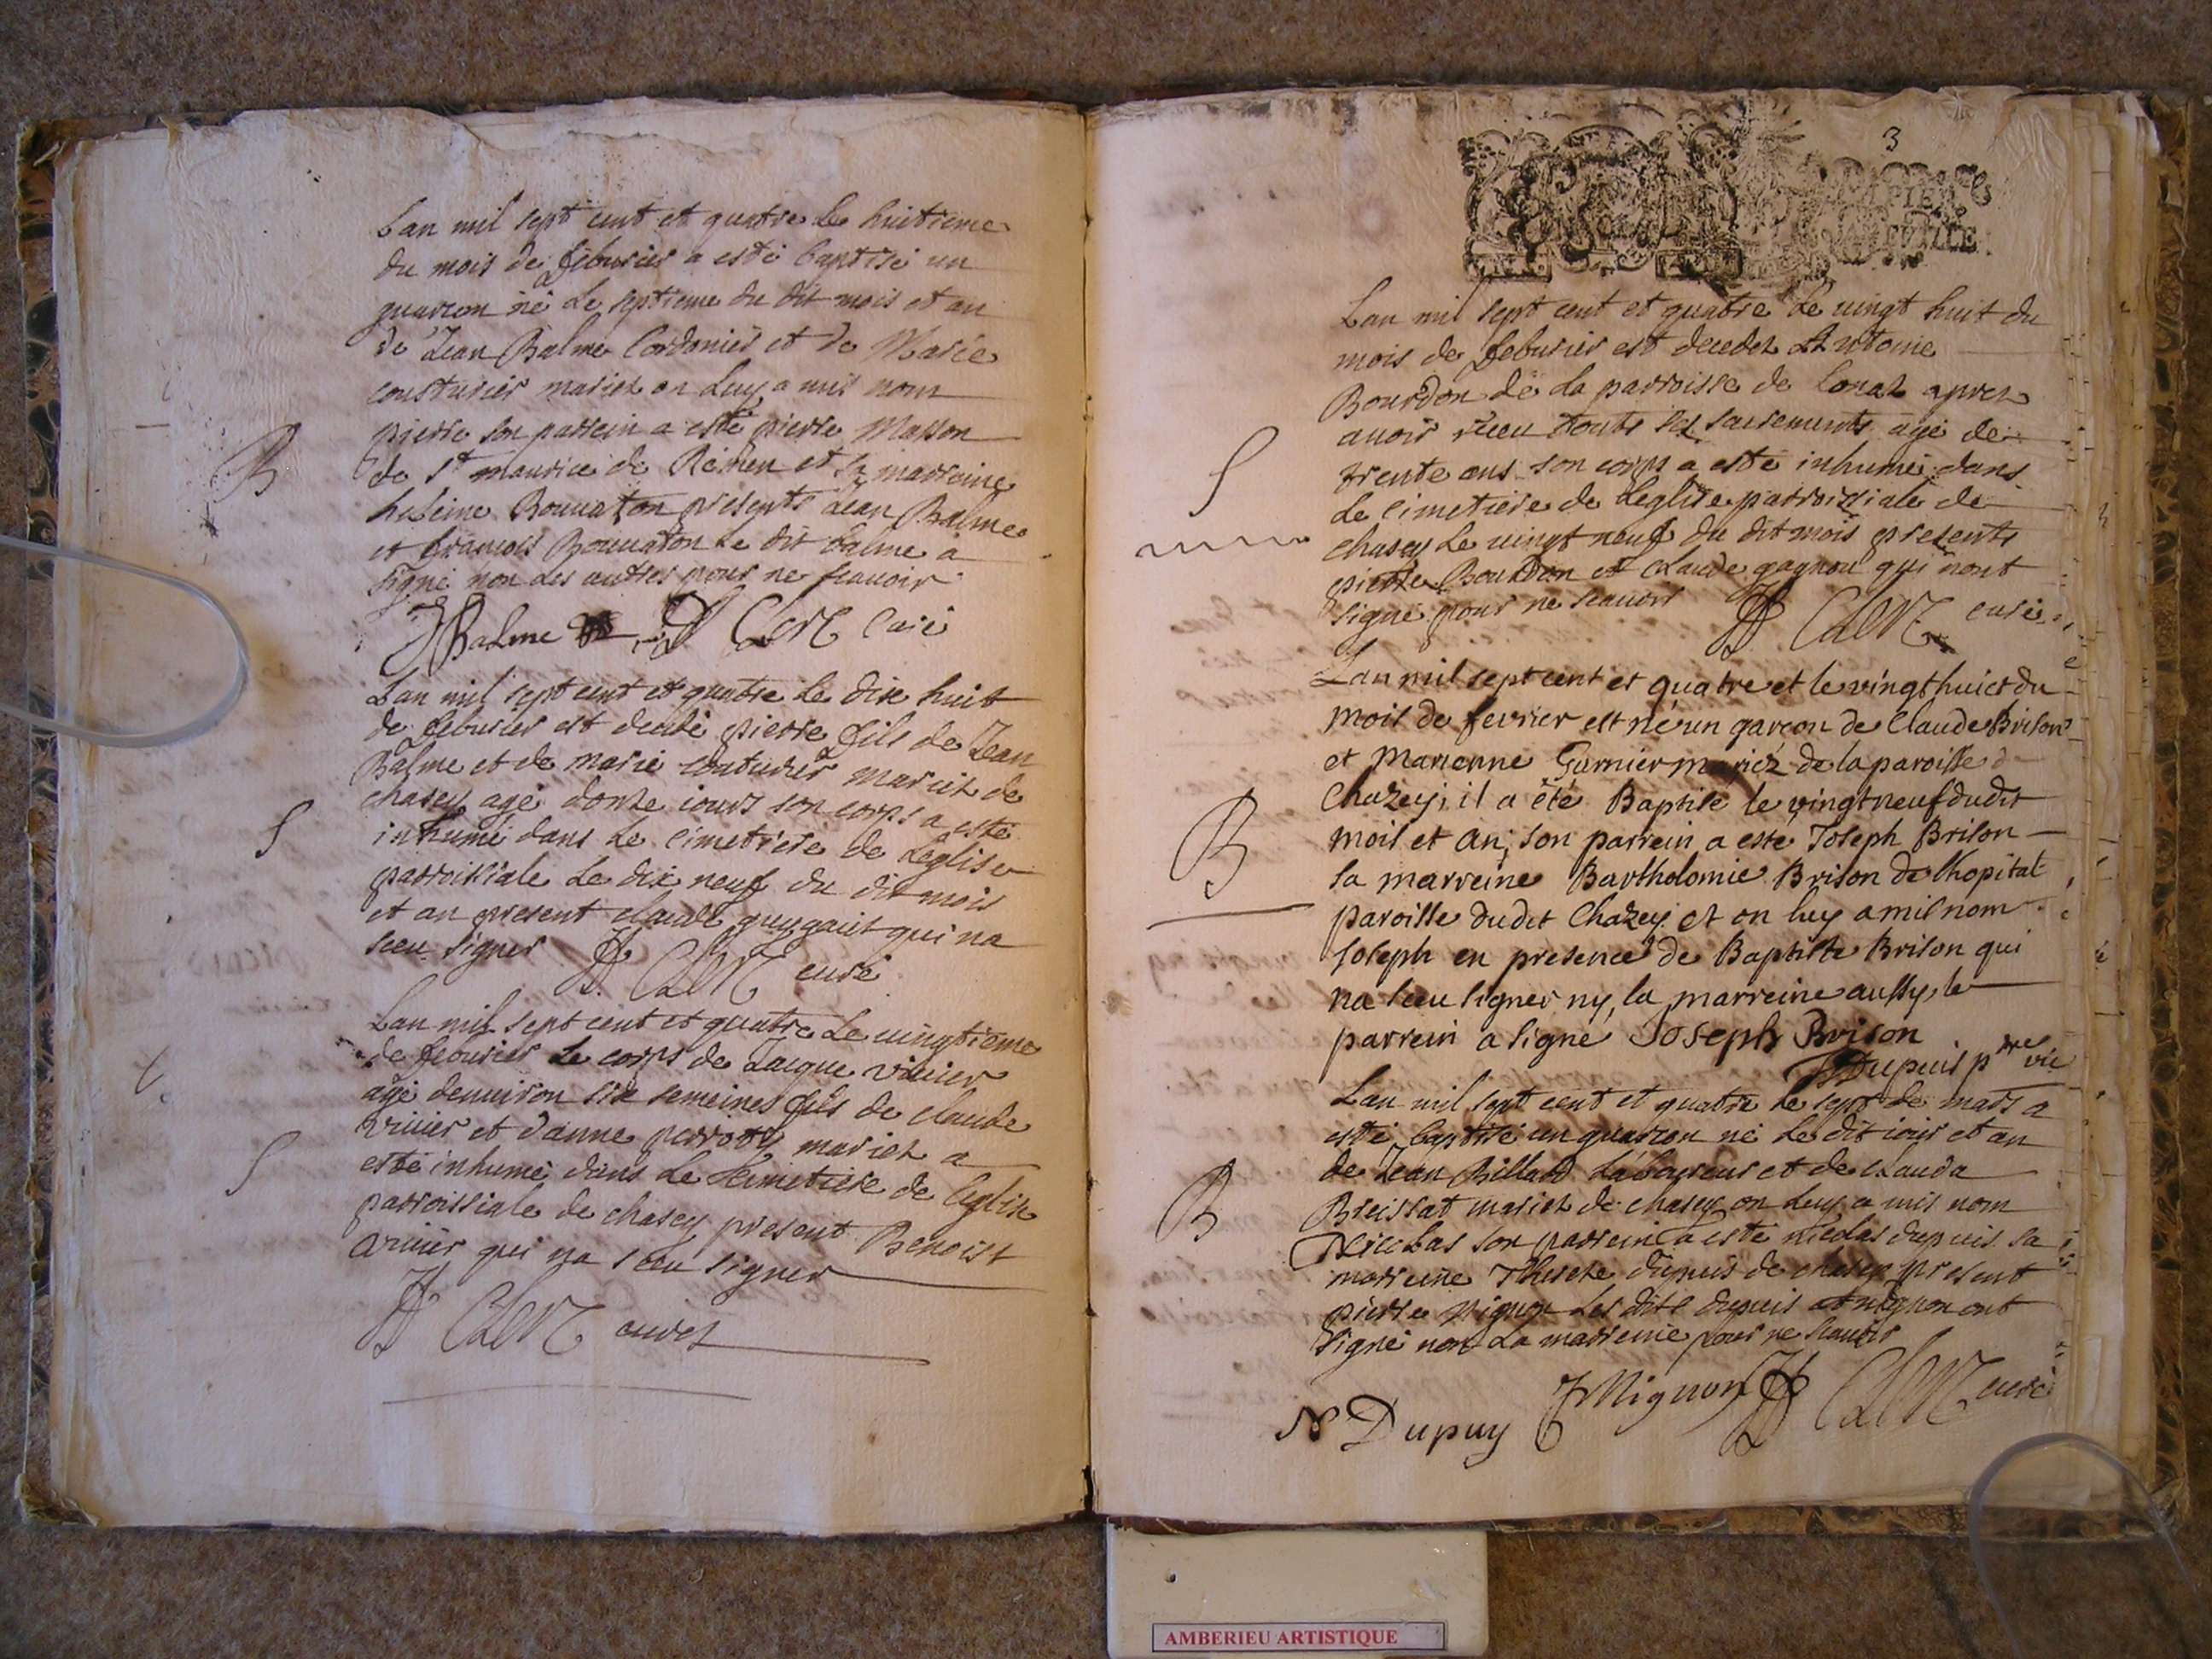 Lan mil sept cent et quatre le huitieme
du mois de feburier a esté baptisé un
guarcon né le septieme du dit mois et an
de Jean Balme Cordonier et de Marie
cousturier mariez on luy a mis nom
pierre son parrein a esté pierre Masson
de St maurice de Rémen et sa marreine
heleine Bouuaton presents Jean Balme
et francois Bouuaton le dit balme a
signé non les autres pour ne scauoir
JBalme Clerc Curé
B
Lan mil sept cent et quatre le dix huit
de feburier est decedé pierre fils de Jean
Balme et de marie couturier mariez de
chasey agé donze iours son corps a esté
inhumé dans le cimetiere de Leglise
parroissiale le dix neuf du dit mois
et an present claude guygait qui na
sceu signer Clerc curé
S
Lan mil sept cent et quatre le uingtieme
de feburier le corps de Jacque viuier
agé denuiron six semeines fils de claude
viuier et danne perrot mariez a
esté inhumé dans le cimetiere de leglise
parroissiale de chasey present Benoist
qui na sceu signer
Clerc curez
S
3
PAPIER
Lan mil sept cent et quatre le uingt huit du
mois de feburier est decedez Antoine
Bourdon de la parroisse de Lonaz aprez
auoir receu touts ses sacrements agé de
trente ans son corps a esté inhumé dans
le cimetiere de leglise parroissiale de
chasey le uingt neuf du dit mois presents
pierre Bourdon et Claude gagnon qui nont
signé pour ne scauoir Clerc curé
S
Lan mil sept cent et quatre et le vingt huict du
mois de fevrier est né un garçon de Claude Brison
et Marienne Garnier mariez de la paroisse de
Chazey; il a été Baptisé le vingt neuf dudt
mois et an; son parrein a esté Joseph Brison
sa marreine Bartholomie Brison de lhopital
paroisse dudt Chazey et on luy a mis nom
Joseph en presence de Baptiste Brison qui
na sceu signer ny la marreine aussy, le
parrein a signé Joseph Brison
Dupuis ptre vic
B
Lan mil sept cent et quatre le sept de mars a
esté baptisé un guarcon né le dit iour et an
de Jean Billard Laboureur et de clauda
Breissat mariez de chasey on luy a mis nom
Nicolas son parrein a esté nicolas dupuis sa
marreine Therese dupuis de chasey present
pierre Mignon les dits dupuis et mignon ont
signé non la marreine pour ne scauoir
B
N Dupuy Mignon Clerc curé
AMBERIEU ARTISTIQUE